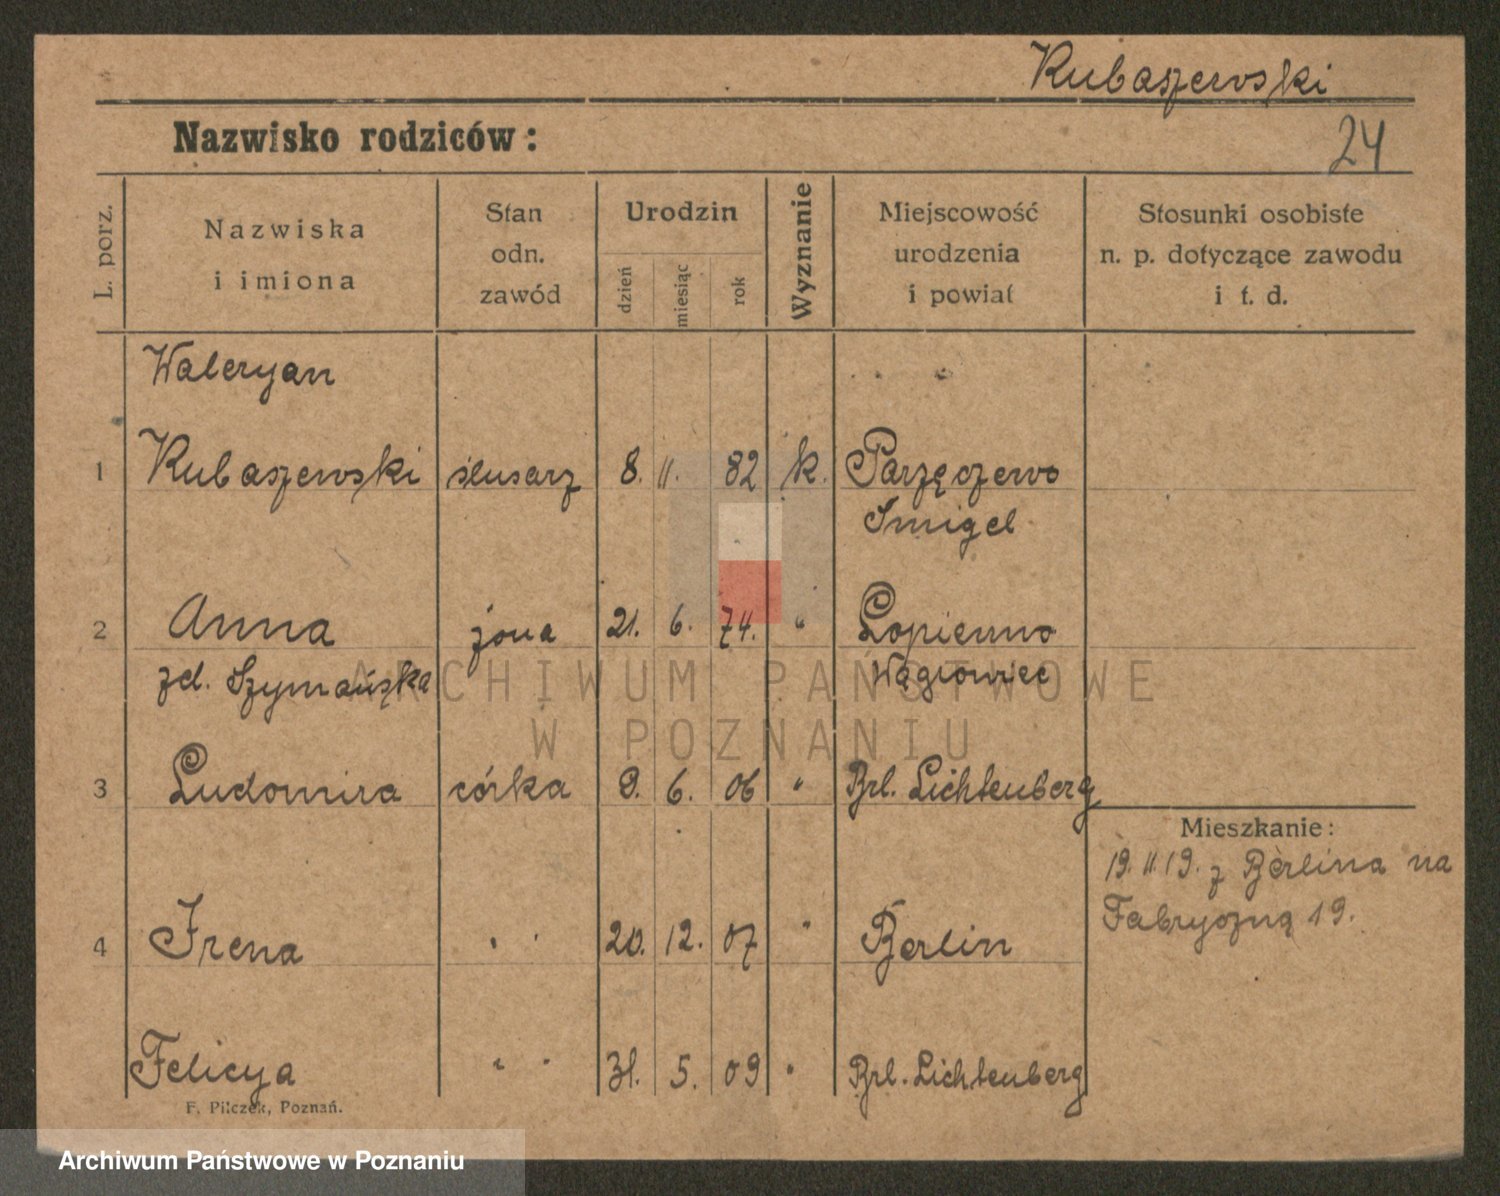 Kubaszewski
Nazwisko rodziców:
24
L. porz.
Nazwiska
i imiona
Stan
odn.
zawód
Urodzin
dzień
miesiąc
rok
Wyznanie
Miejscowość
urodzenia
i powiat
Stosunki osobiste
n. p. dotyczące zawodu
i t. d.
Waleryan
1 Kubaszewski ślusarz 8. 11. 82 k. Parzęczewo
Śmigel
2 Anna żona 21. 6. 74. " Łopienno
zd. Szymańska Wągrowiec
3 Ludomira córka 9. 6. 06 " Brl. Lichtenberg
Mieszkanie:
19. 11 19. z Berlina na
Fabryczną 19.
4 Irena " " 20. 12. 07 " Berlin
Felicya " " 31. 5. 09 " Brl. Lichtenberg
F. Pilczek, Poznań.
ARCHIWUM PAŃSTWOWE
W POZNANIU
Archiwum Państwowe w Poznaniu